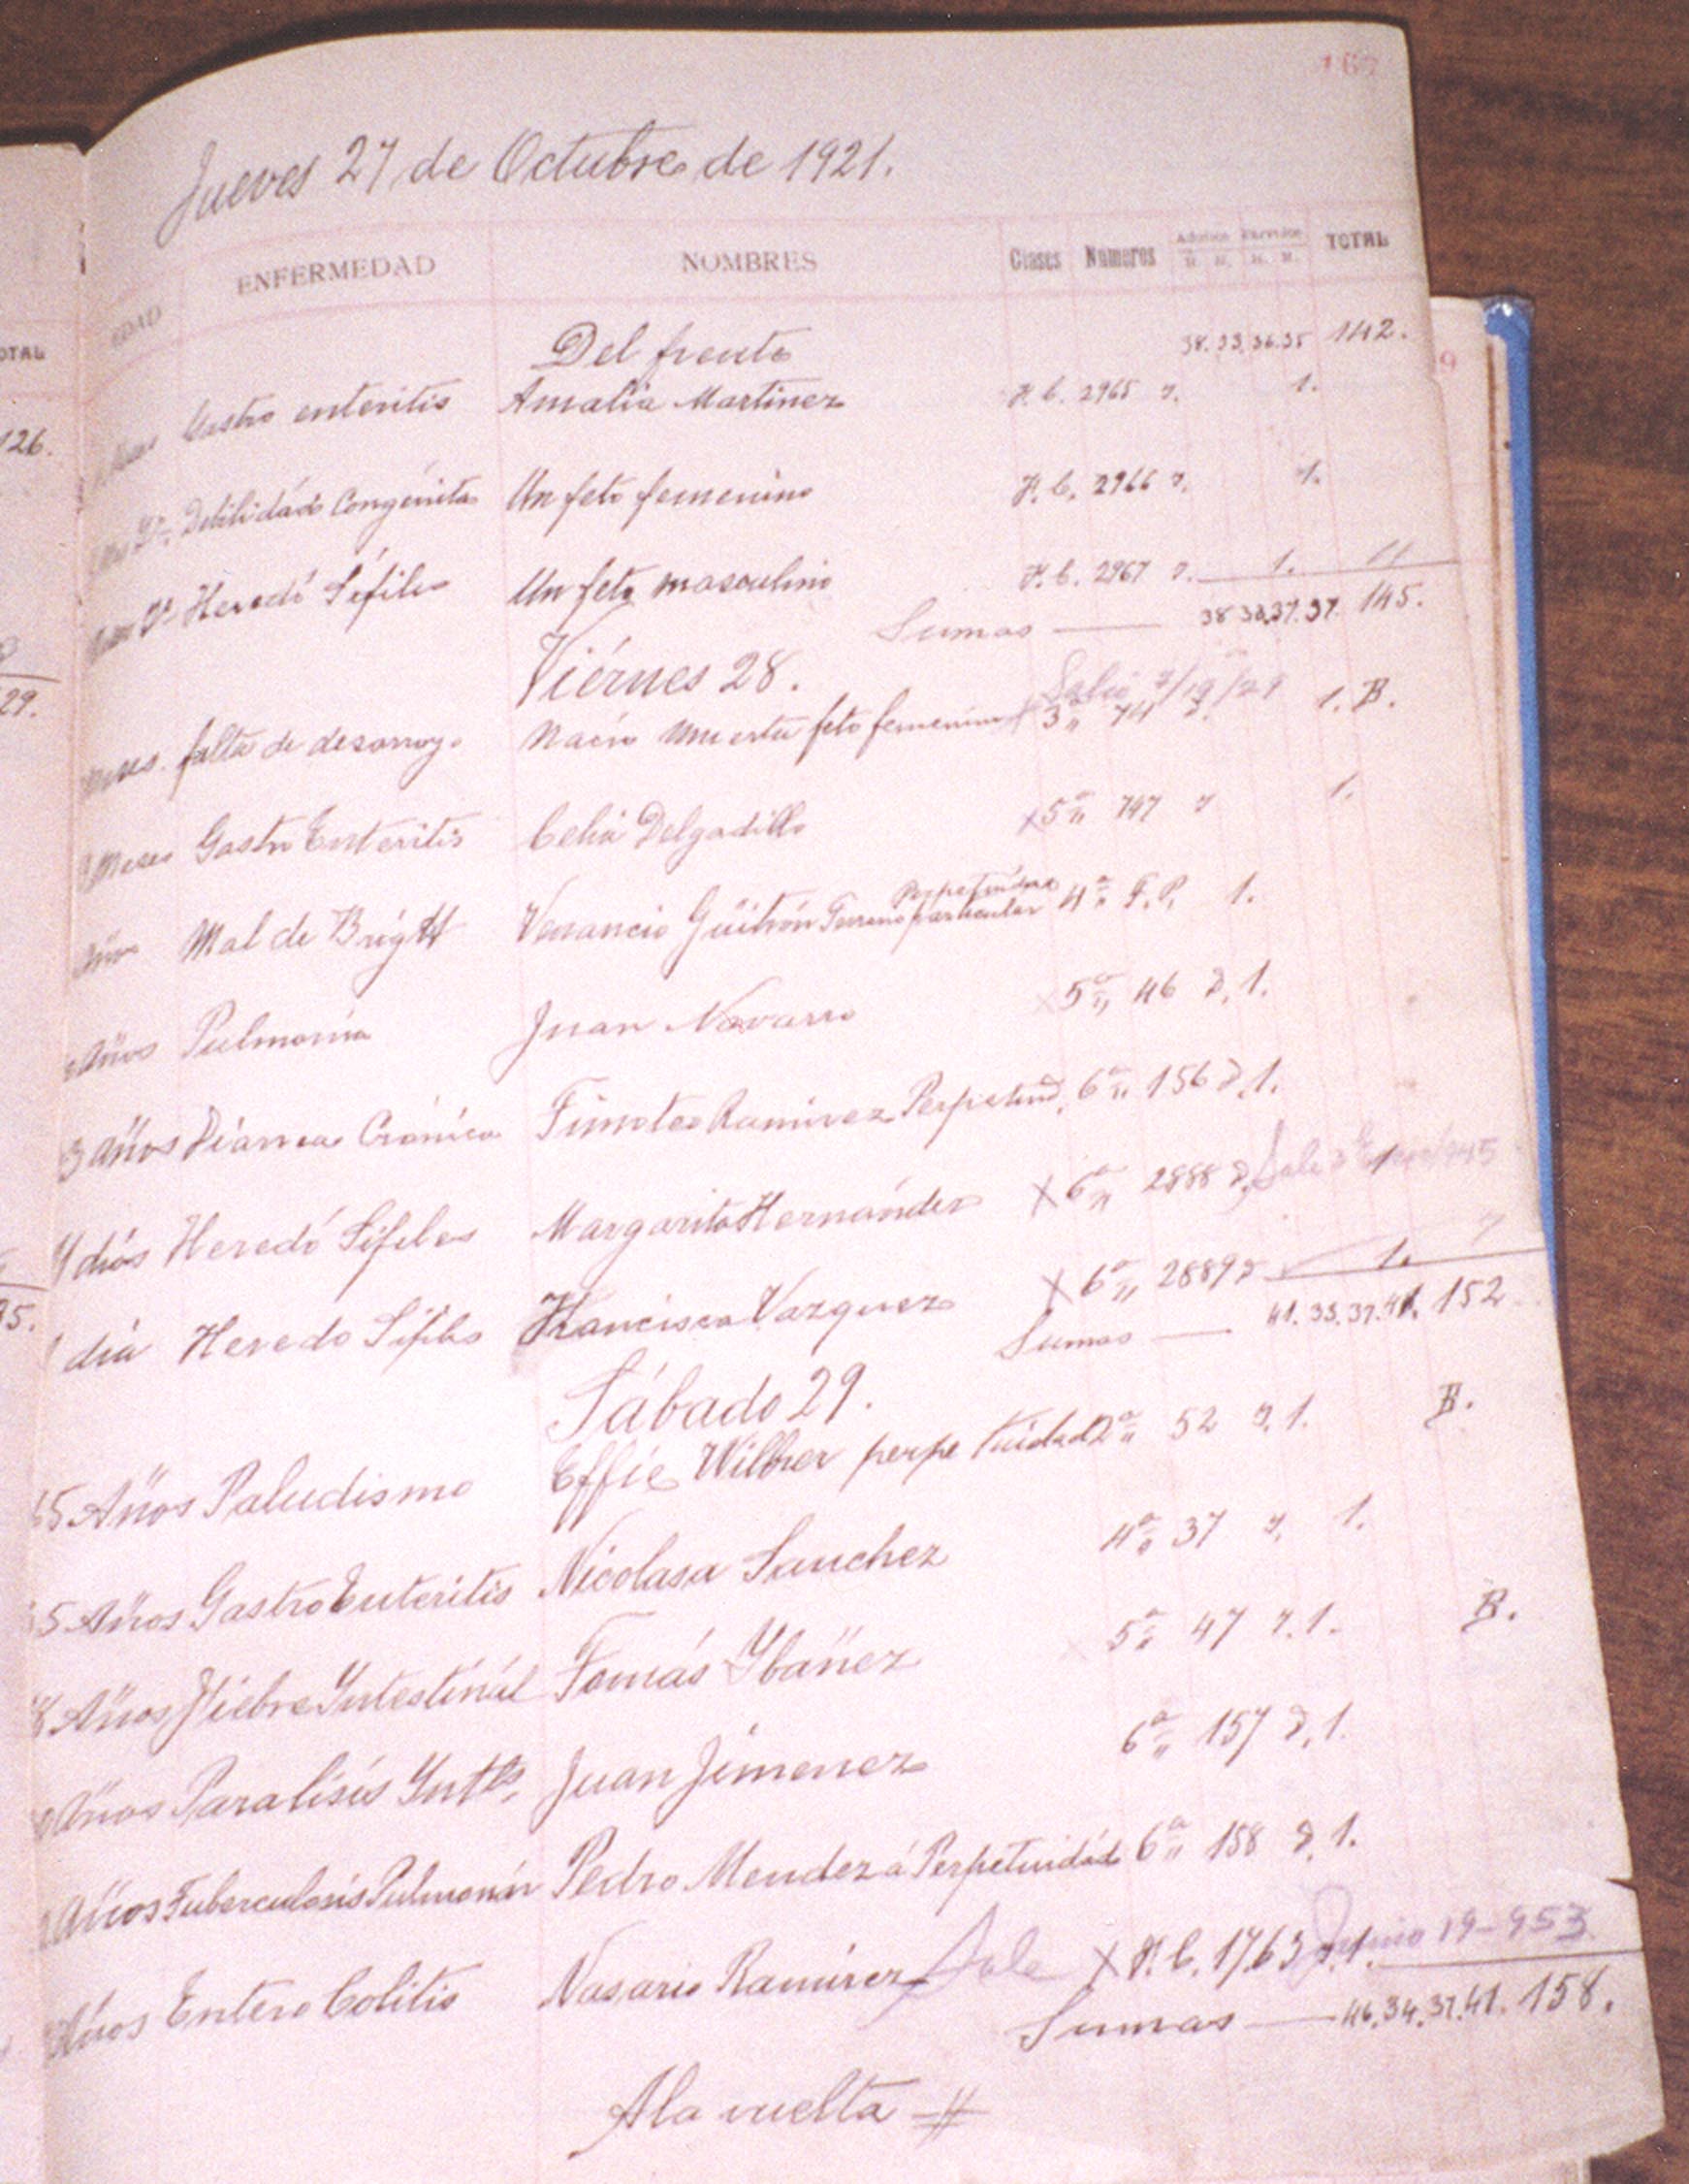 Jueves 27 de Octubre de 1921.
EDAD ENFERMEDAD NOMBRES Clases Numeros Adultos Parvulos TOTAL
H. M. H. M.
OTAL
Del frente 38. 33. 36. 35 142.
Gastro enteritis Amalia Martinez F. C. 2965 1.
126.
Debilidad Congénita Un feto femenino F. C. 2966 1.
Heredó Sífiles Un feto masculino F. C. 2967 1. 11
Sumas 38 33, 37. 37. 145.
29.
Viérnes 28.
Salió 7/19/29
meses. falta de desarroyo Nació muerta feto femenino 3a 74 1. B.
Meses Gastro Enteritis Celia Delgadillo X 5a 747 1.
Perpetuidad
Años Mal de Brigtt Venancio Güitrón Terreno particular 4a F. P. 1.
Años Pulmonía Juan Navarro X 5a 46 D. 1.
3 Años Diarrea Crónica Timoteo Ramirez Perpetuid. 6a 156 D. 1.
días Heredó Sífiles Margarita Hernández X 6a 2888 D. Sale 1945
día Heredo Sífiles Francisca Vazquez X 6a 2889 D 1. 7
Sumas 41. 33. 37. 41. 152
Sábado 29.
65 Años Paludismo Effie Wilber perpe tuidad 2a 52 1. B.
5 Años Gastro Enteritis Nicolasa Sanchez 4a 37 1.
Años Fiebre Intestinál Tomás Ybañez 5a 47 1. B.
Años Paralisís Ynttl. Juan Jimenez 6a 157 D. 1.
Años Tuberculosis Pulmonár Pedro Mendez á Perpetuidád 6a 158 D. 1.
Años Entero Colitis Nasario Ramirez Sale X F. C. 1763 1. Junio 19-953
Sumas 46. 34. 37. 41. 158.
A la vuelta #